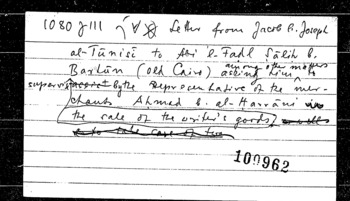 1080 J 111 Letter from Jacob b. Joseph
al-Tūnisī to Abi 'l-Faḍl Ṣāliḥ b.
Barhūn (Old Cairo) asking him among other matters to
supervise by the representative of the mer-
chants Ahmed b. al-Harrānī
the sale of the writer's goods,
to take care of two
100962